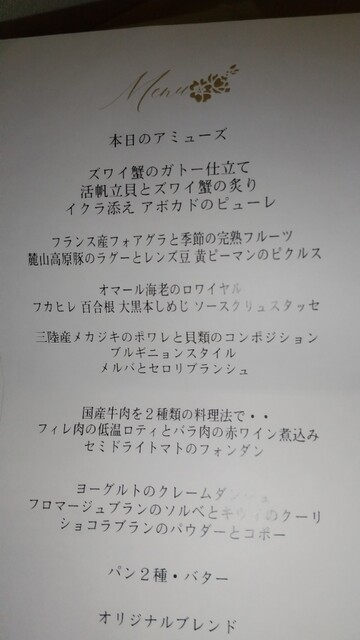 Menu
本日のアミューズ
ズワイ蟹のガトー仕立て
活帆立貝とズワイ蟹の炙り
イクラ添え アボカドのピューレ
フランス産フォアグラと季節の完熟フルーツ
麓山高原豚のラグーとレンズ豆 黄ピーマンのピクルス
オマール海老のロワイヤル
フカヒレ 百合根 大黒本しめじ ソースクリュスタッセ
三陸産メカジキのポワレと貝類のコンポジション
ブルギニョンスタイル
メルバとセロリブランシュ
国産牛肉を２種類の料理法で・・
フィレ肉の低温ロティとバラ肉の赤ワイン煮込み
セミドライトマトのフォンダン
ヨーグルトのクレームダンジュ
フロマージュブランのソルベと のクーリ
ショコラブランのパウダーとコポー
パン２種・バター
オリジナルブレンド